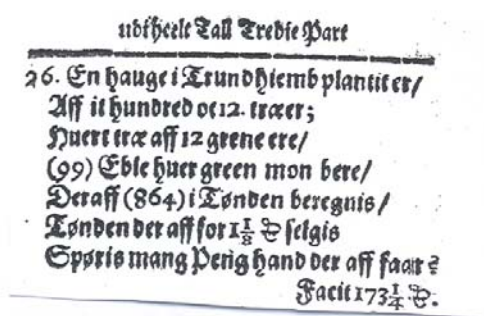 udi heele Tall Tredie Part
26. En hauge i Trundhiemb plantit er/
Aff it hundred oc 12. træer;
Huert træ aff 12 grene ere/
(99) Eble huer green mon bere/
Deraff (864) i Tønden beregnis/
Tønden der aff for 1⅛ selgis
Spøris mang Penig hand der aff faar?
Facit 173¼